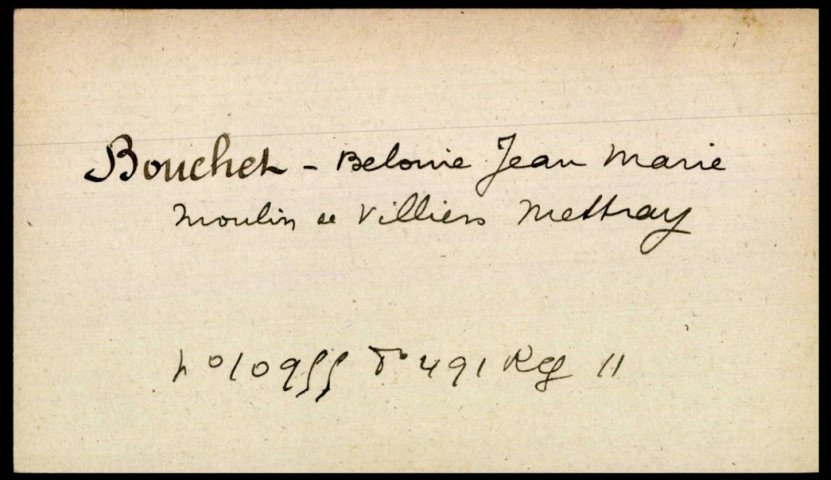 Bouchet - Belonie Jean Marie
Moulin de Villiers Mettray
No 10955 Fo 491 Rg 11